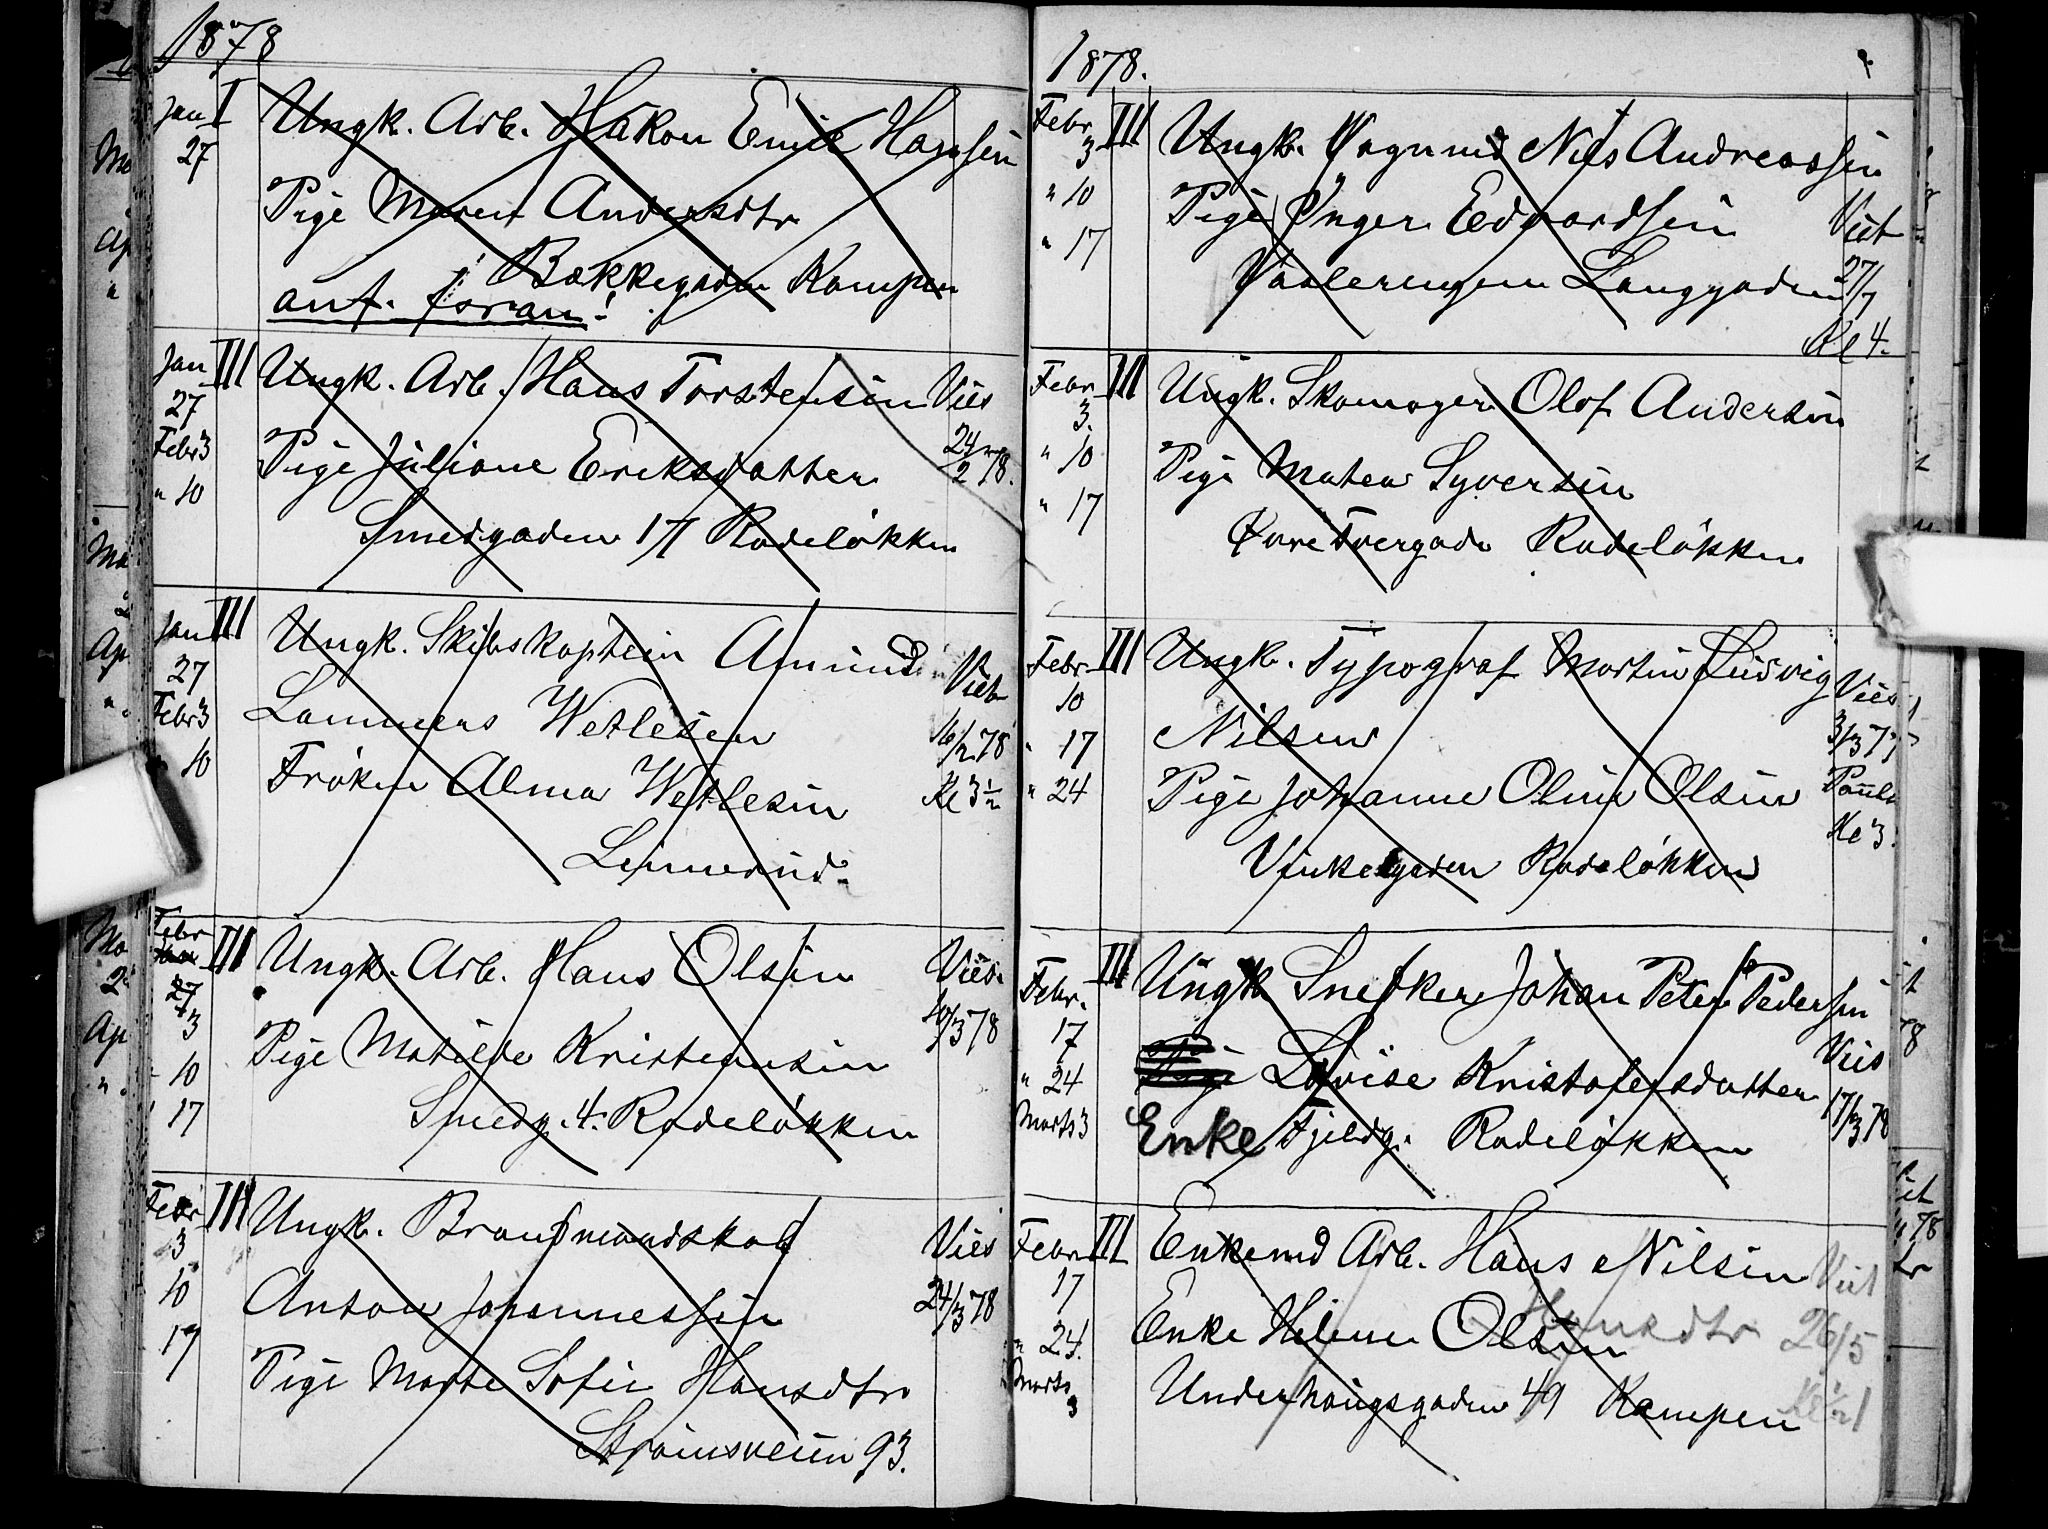 1878
Jan I Ungk. Arb. Håkon Emil Hansen
27
Pige Maren Andersdtr
Bækkegaden Kampen
anf. forran!
Jan III Ungk. Arb. Hans Torstensen Viet
27
Febr 3 Pige Juliane Eriksdatter 24/2 78.
" 10
Smedgaden 17 Rodeløkken
Jan III Ungk. Skibskaptein Amund Viet
27
Febr 3 Lammers Wetlesen 16/2 78
10 Frøken Alma Wetlesen Kl 3½
Linnerud.
Febr III Ungk. Arb. Hans Olsen Viet
Jan
27
3 10/3 78
10 Pige Matilde Kristensen
17 Smedg. 4. Rodeløkken
Febr III Ungk. Brandmandskab Viet
3
10 Anton Johannessen 24/3 78
17 Pige Marte Sofie Hansdtr
Strømsveien 93.
1878.
Febr III Ungk. Vognmd Nils Andreassen
3
" 10 Pige Inger Edvardsen Viet
" 17
Vaalerengen Langgaden 27/7
Kl 4.
Febr III Ungk. Skomager Olof Andersen
3.
" 10 Pige Matea Syversen
" 17
Øvre Tvergade Rodeløkken
Febr III Ungk. Typograf Martin Ludvig Viet
10
" 17 Nilsen 3/3 77
" 24 Pige Johanne Oline Olsen
Kl 3.
Vinkelgaden Rodeløkken
Febr. III Ungk. Snekker Johan Peter Pedersen
17 Viet
" 24 Pige Lovise Kristofersdatter
Marts 3 Enke Fjeldg. Rodeløkken 17/3 78
Febr III Enkemd Arb. Hans Nilsen Viet
17
Hansdtr 26/5
" 24. Enke Helene Olsen
Marts
3 Underhaugsgaden 49 Kampen